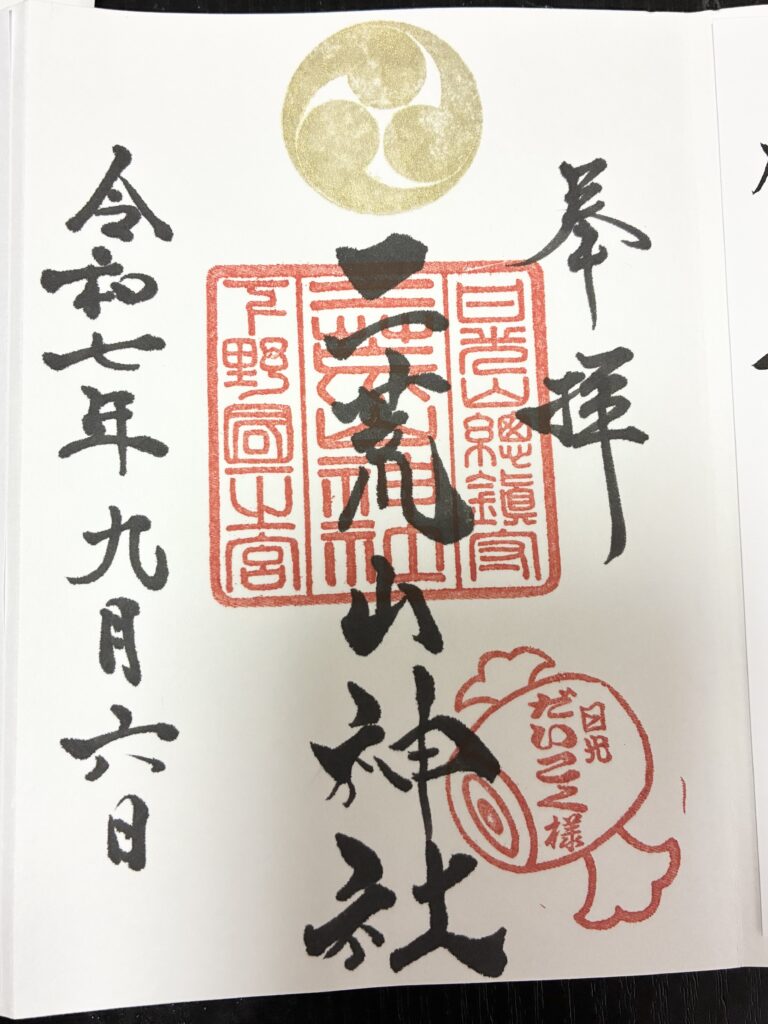 奉拝
日光山總鎮守
二荒山神社
下野国一之宮
二荒山神社
日光
だいこく様
令和七年九月六日